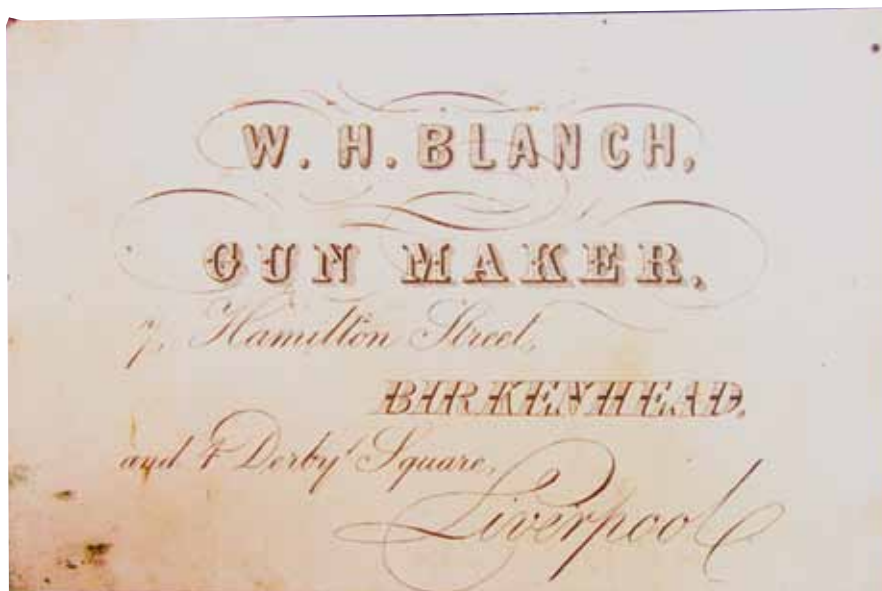 W. H. BLANCH,
GUN MAKER,
7, Hamilton Street,
BIRKENHEAD.
and 4 Derby Square,
Liverpool